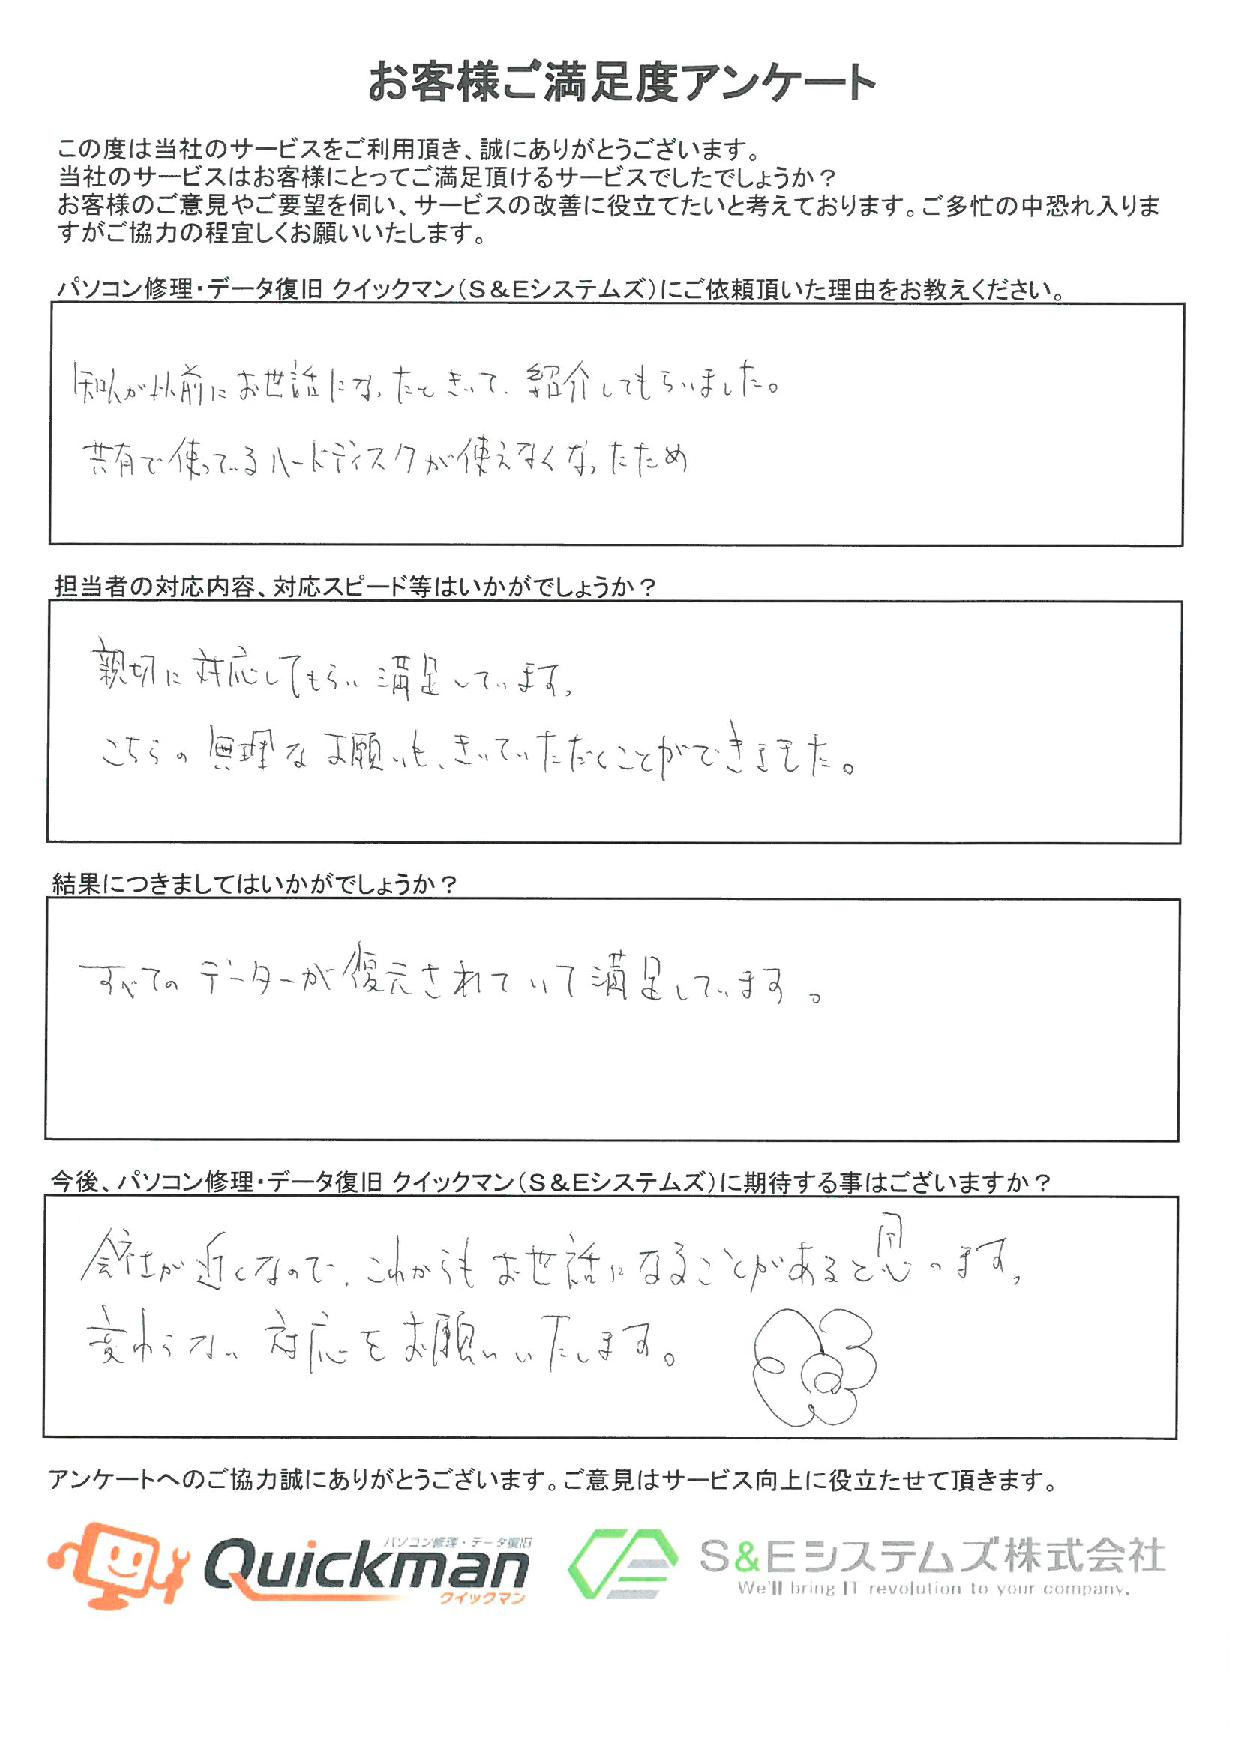 お客様ご満足度アンケート
この度は当社のサービスをご利用頂き、誠にありがとうございます。
当社のサービスはお客様にとってご満足頂けるサービスでしたでしょうか？
お客様のご意見やご要望を伺い、サービスの改善に役立てたいと考えております。ご多忙の中恐れ入りま
すがご協力の程宜しくお願いいたします。
パソコン修理・データ復旧 クイックマン（Ｓ＆Ｅシステムズ）にご依頼頂いた理由をお教えください。
知人が以前にお世話になったときいて、紹介してもらいました。
共有で使っているハードディスクが使えなくなったため
担当者の対応内容、対応スピード等はいかがでしょうか？
親切に対応してもらい満足しています。
こちらの無理なお願いも、きいていただくことができました。
結果につきましてはいかがでしょうか？
すべてのデーターが復元されていて満足しています。
今後、パソコン修理・データ復旧 クイックマン（Ｓ＆Ｅシステムズ）に期待する事はございますか？
会社が近くなので、これからもお世話になることがあると思います。
変わらない対応をお願いいたします。
アンケートへのご協力誠にありがとうございます。ご意見はサービス向上に役立たせて頂きます。
パソコン修理・データ復旧
Quickman
クイックマン
S&Eシステムズ株式会社
We'll bring IT revolution to your company.